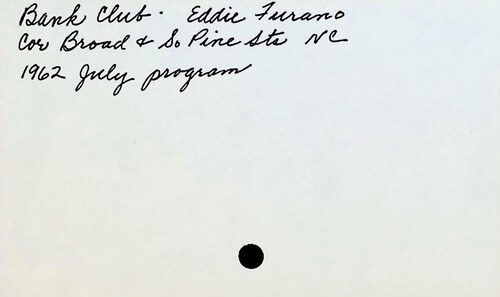 Bank Club. Eddie Furano
Cor Broad & So Pine Sts NC
1962 July program